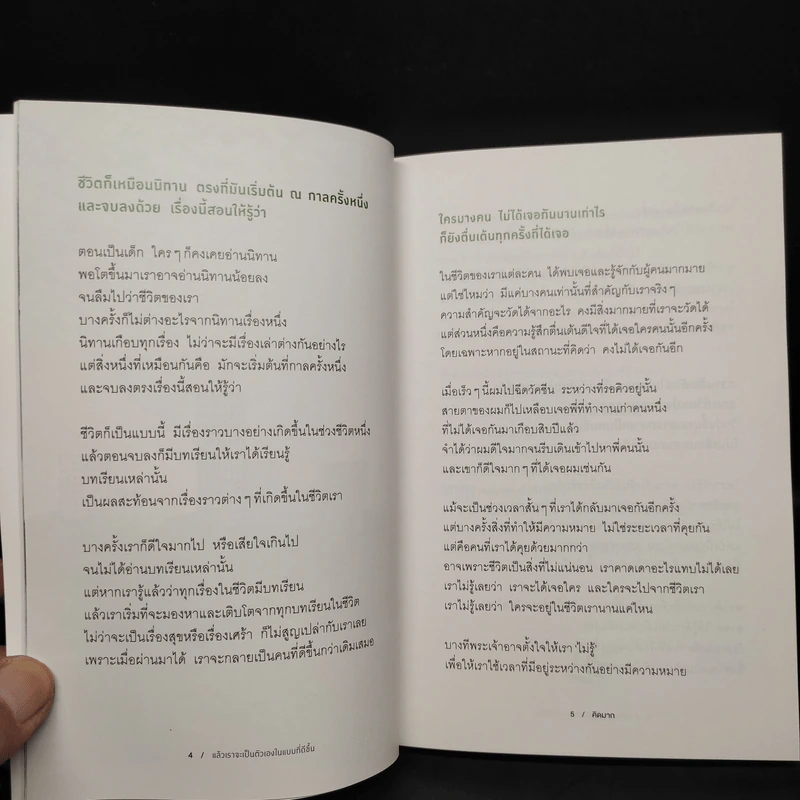 ชีวิตก็เหมือนนิทาน ตรงที่มันเริ่มต้น ณ กาลครั้งหนึ่ง
และจบลงด้วย เรื่องนี้สอนให้รู้ว่า
ตอนเป็นเด็ก ใครๆ ก็คงเคยอ่านนิทาน
พอโตขึ้นมาเราอาจอ่านนิทานน้อยลง
จนลืมไปว่าชีวิตของเรา
บางครั้งก็ไม่ต่างอะไรจากนิทานเรื่องหนึ่ง
นิทานเกือบทุกเรื่อง ไม่ว่าจะมีเรื่องเล่าต่างกันอย่างไร
แต่สิ่งหนึ่งที่เหมือนกันคือ มักจะเริ่มต้นที่กาลครั้งหนึ่ง
และจบลงตรงเรื่องนี้สอนให้รู้ว่า
ชีวิตก็เป็นแบบนี้ มีเรื่องราวบางอย่างเกิดขึ้นในช่วงชีวิตหนึ่ง
แล้วตอนจบลงก็มีบทเรียนให้เราได้เรียนรู้
บทเรียนเหล่านั้น
เป็นผลสะท้อนจากเรื่องราวต่างๆ ที่เกิดขึ้นในชีวิตเรา
บางครั้งเราก็ดีใจมากไป หรือเสียใจเกินไป
จนไม่ได้อ่านบทเรียนเหล่านั้น
แต่หากเรารู้แล้วว่าทุกเรื่องในชีวิตมีบทเรียน
แล้วเราเริ่มที่จะมองหาและเติบโตจากทุกบทเรียนในชีวิต
ไม่ว่าจะเป็นเรื่องสุขหรือเรื่องเศร้า ก็ไม่สูญเปล่ากับเราเลย
เพราะเมื่อผ่านมาได้ เราจะกลายเป็นคนที่ดีขึ้นกว่าเดิมเสมอ
4 / แล้วเราจะเป็นตัวเองในแบบที่ดีขึ้น
ใครบางคน ไม่ได้เจอกันนานเท่าไร
ก็ยังตื่นเต้นทุกครั้งที่ได้เจอ
ในชีวิตของเราแต่ละคน ได้พบเจอและรู้จักกับผู้คนมากมาย
แต่ใช่ไหมว่า มีแค่บางคนเท่านั้นที่สำคัญกับเราจริงๆ
ความสำคัญจะวัดได้จากอะไร คงมีสิ่งมากมายที่เราจะวัดได้
แต่ส่วนหนึ่งคือความรู้สึกตื่นเต้นดีใจที่ได้เจอใครคนนั้นอีกครั้ง
โดยเฉพาะหากอยู่ในสถานะที่คิดว่า คงไม่ได้เจอกันอีก
เมื่อเร็วๆ นี้ผมไปฉีดวัคซีน ระหว่างที่รอคิวอยู่นั้น
สายตาของผมก็ไปเหลือบเจอพี่ที่ทำงานเก่าคนหนึ่ง
ที่ไม่ได้เจอกันมาเกือบสิบปีแล้ว
จำได้ว่าผมดีใจมากจนรีบเดินเข้าไปหาพี่คนนั้น
และเขาก็ดีใจมากๆ ที่ได้เจอผมเช่นกัน
แม้จะเป็นช่วงเวลาสั้นๆ ที่เราได้กลับมาเจอกันอีกครั้ง
แต่บางครั้งสิ่งที่ทำให้มีความหมาย ไม่ใช่ระยะเวลาที่คุยกัน
แต่คือคนที่เราได้คุยด้วยมากกว่า
อาจเพราะชีวิตเป็นสิ่งที่ไม่แน่นอน เราคาดเดาอะไรแทบไม่ได้เลย
เราไม่รู้เลยว่า เราจะได้เจอใคร และใครจะไปจากชีวิตเรา
เราไม่รู้เลยว่า ใครจะอยู่ในชีวิตเรานานแค่ไหน
บางทีพระเจ้าอาจตั้งใจให้เรา 'ไม่รู้'
เพื่อให้เราใช้เวลาที่มีอยู่ระหว่างกันอย่างมีความหมาย
5 / คิดมาก